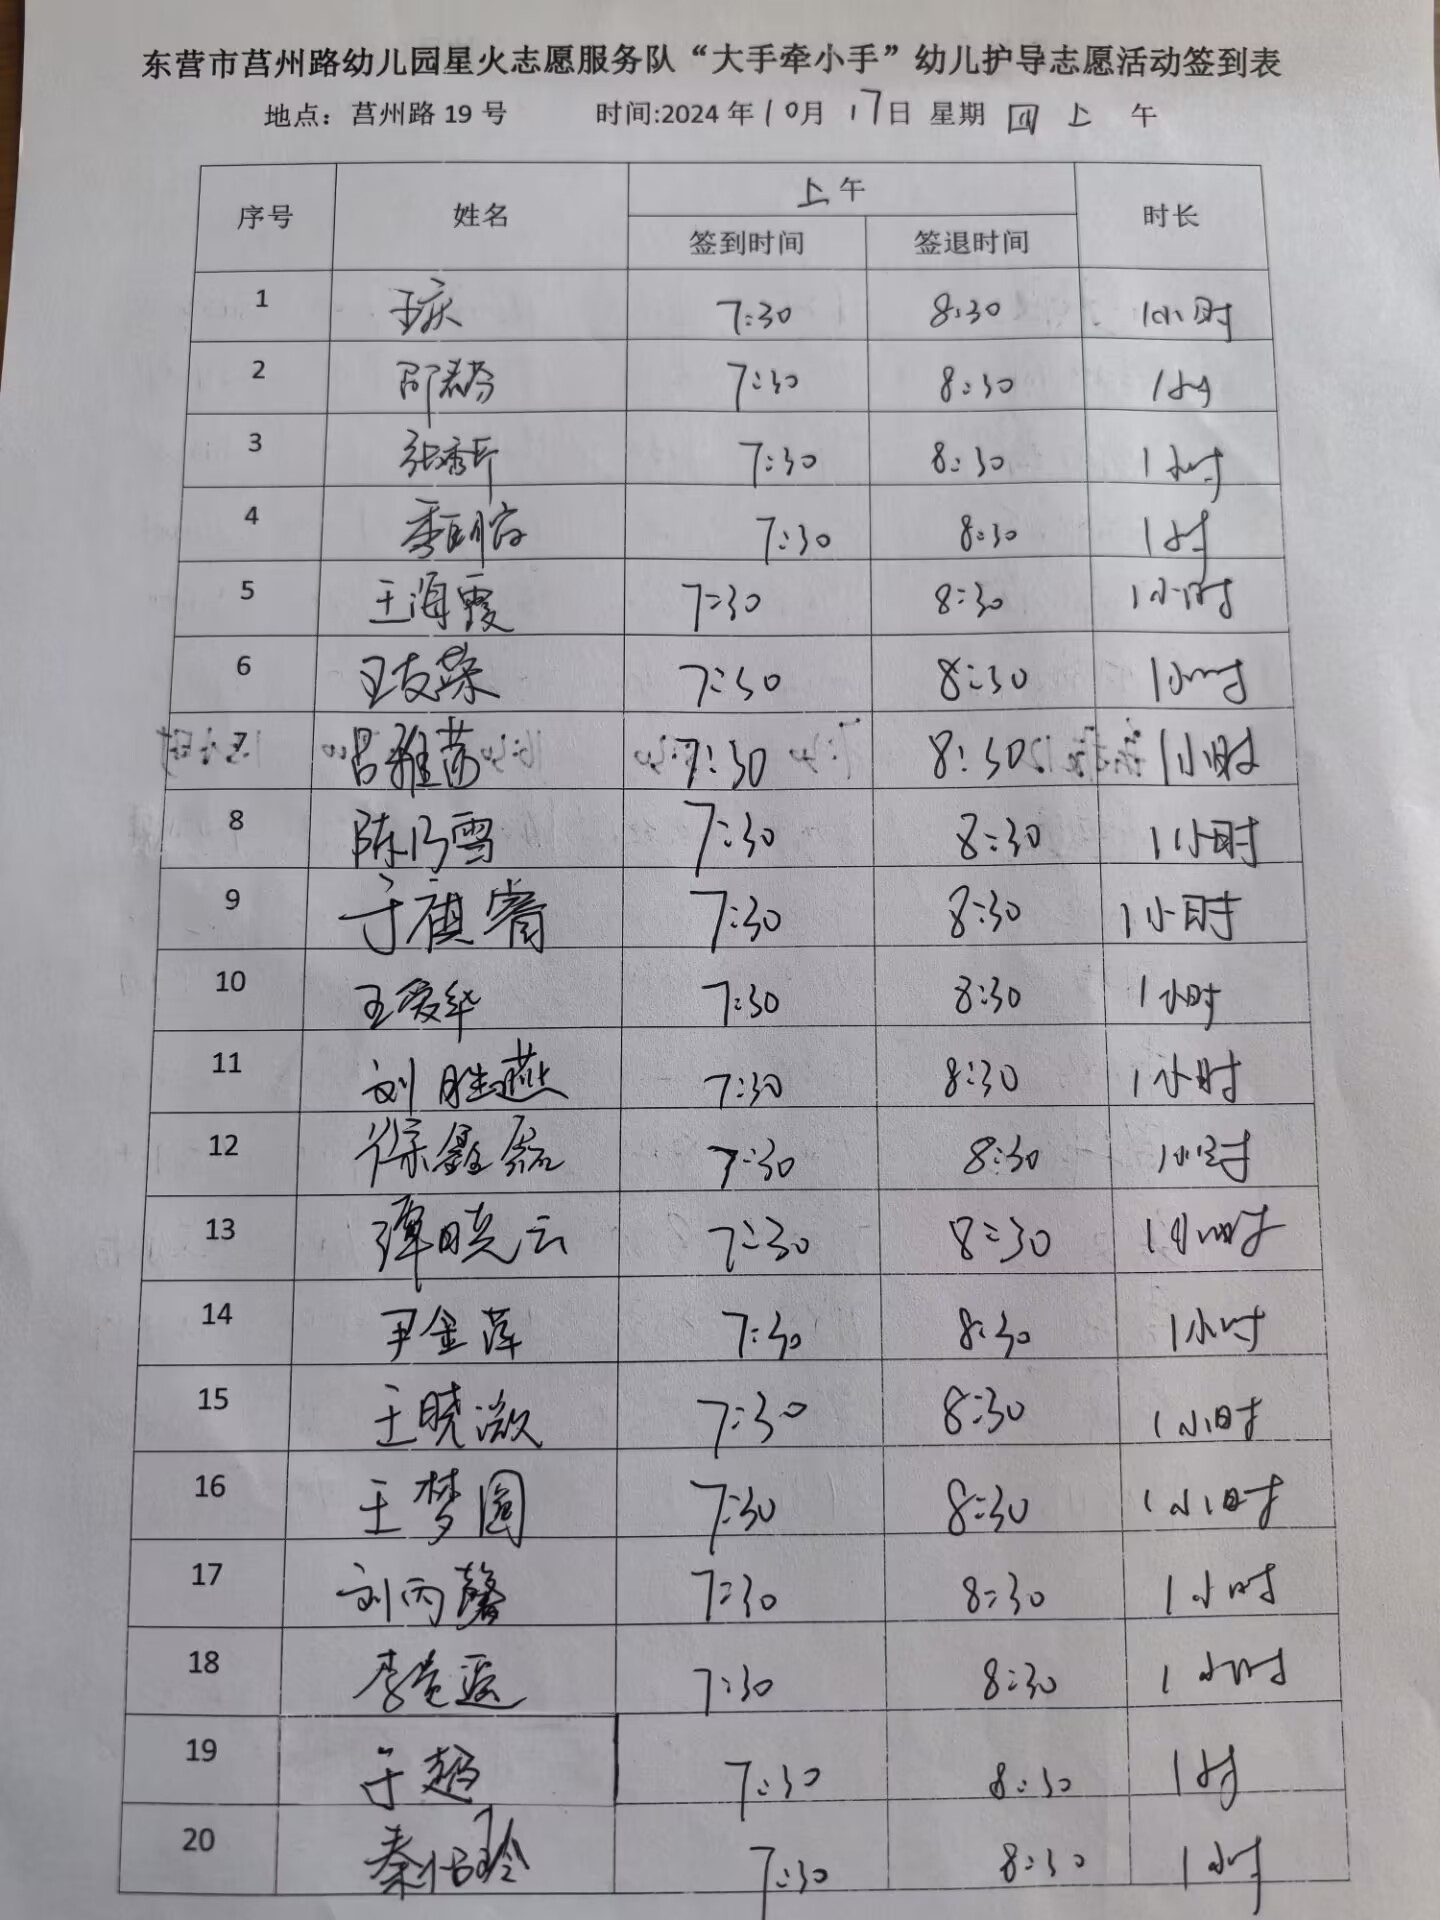 东营市莒州路幼儿园星火志愿服务队“大手牵小手”幼儿护导志愿活动签到表
地点：莒州路 19 号 时间:2024 年 10月 17日 星期 四 上 午
序号 姓名 上午 时长
签到时间 签退时间
1 王庆 7:30 8:30 1小时
2 邵春芬 7:30 8:30 1小时
3 张秀芹 7:30 8:30 1小时
4 7:30 8:30 1小时
5 王海霞 7:30 8:30 1小时
6 王友荣 7:30 8:30 1小时
7 吕雅茜 7:30 8:30 1小时
8 陈乃雪 7:30 8:30 1小时
9 于祺睿 7:30 8:30 1小时
10 王爱华 7:30 8:30 1小时
11 刘胜燕 7:30 8:30 1小时
12 徐鑫磊 7:30 8:30 1小时
13 谭晓云 7:30 8:30 1小时
14 尹金萍 7:30 8:30 1小时
15 王晓溦 7:30 8:30 1小时
16 王梦圆 7:30 8:30 1小时
17 刘丙馨 7:30 8:30 1小时
18 李 7:30 8:30 1小时
19 于超 7:30 8:30 1小时
20 秦怡玲 7:30 8:30 1小时